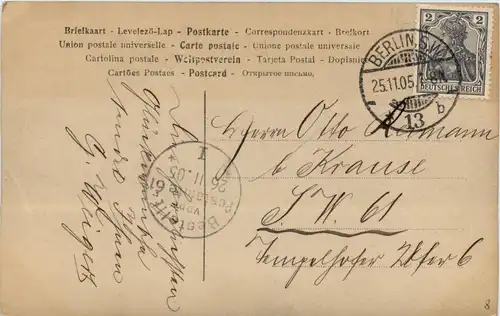 Briefkaart - Levelező-Lap - Postkarte - Correspondenzkart - Brefkort
Union postale universelle - Carte postale - Unione postale universale
Cartolina postale - Weltpostverein - Tarjeta Postal - Dopisnice
Cartões Postaes - Postcard - Открытое письмо.
2
2
DEUTSCHES REICH
BERLIN, S.W.
25.11.05
13 b
Herrn Otto
b Krause
S.W. 61
Tempelhofer Ufer 6
Glückwünsche
G. Weigert
Bestellt
vom
Postamte 61
26.11.05
I
8